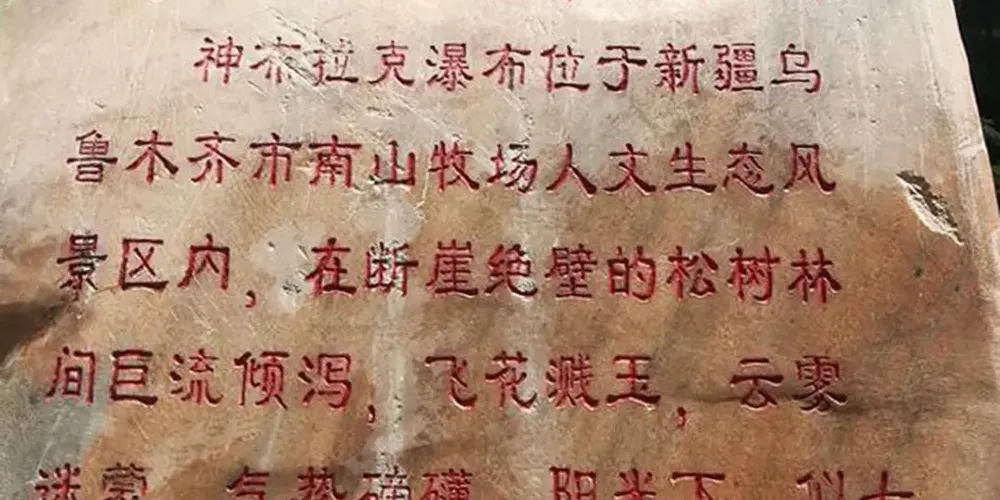 神布拉克瀑布位于新疆乌
鲁木齐市南山牧场人文生态风
景区内，在断崖绝壁的松树林
间巨流倾泻，飞花溅玉，云雾
迷蒙，气势磅礴，阳光下，似